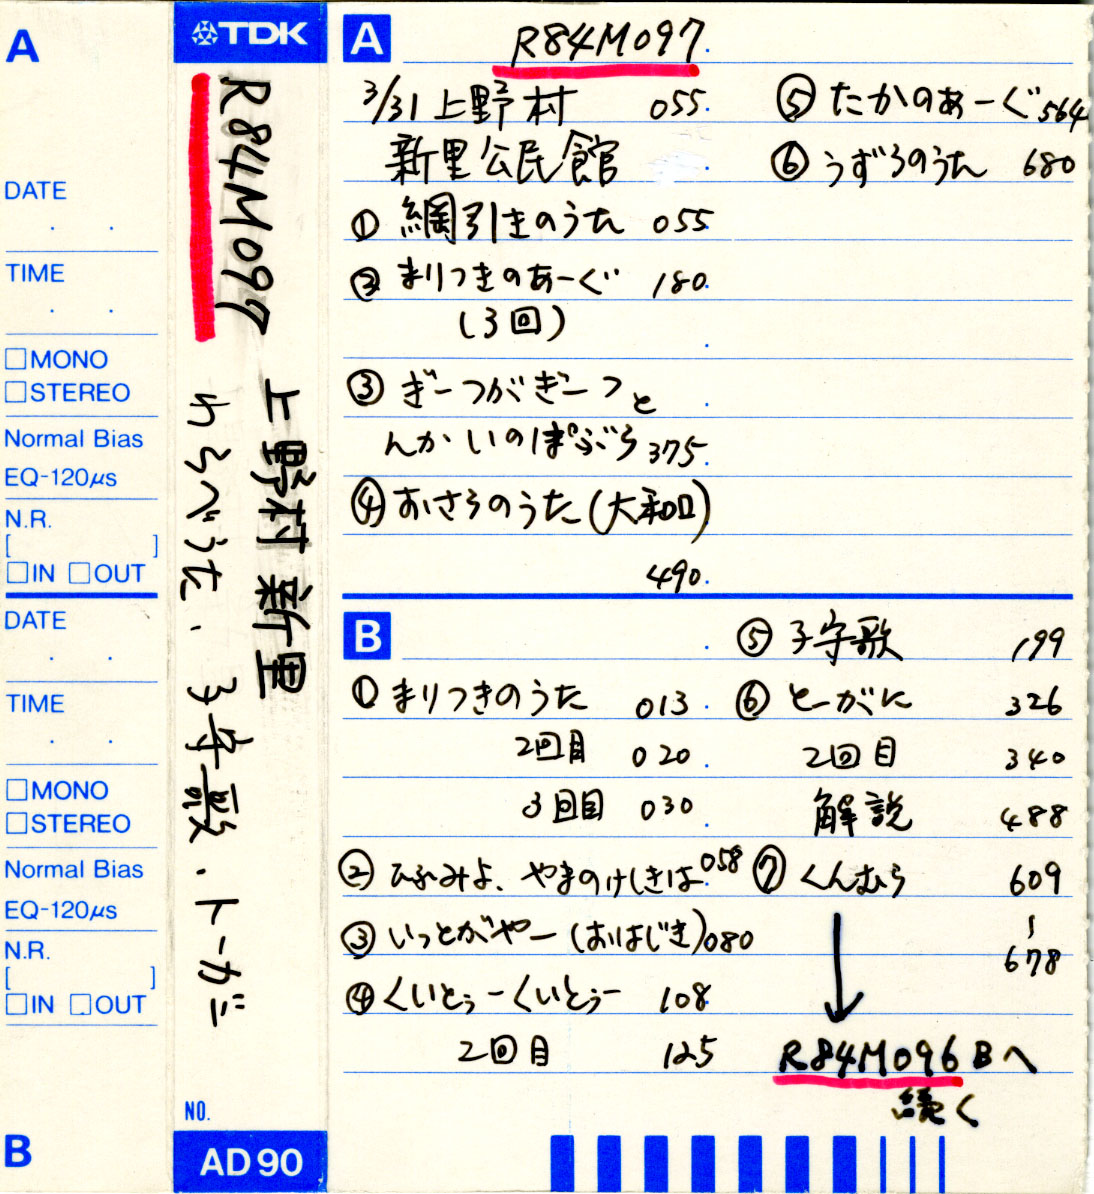 A
DATE
TIME
□MONO
□STEREO
Normal Bias
EQ-120μs
N.R.
[ ]
□IN □OUT
DATE
TIME
□MONO
□STEREO
Normal Bias
EQ-120μs
N.R.
[ ]
□IN □OUT
B
TDK
R84M097
上野村 新里
わらべうた・子守歌・トーガニ
NO.
AD90
A
R84M097
3/31 上野村 055
新里公民館
① 綱引きのうた 055
② まりつきのあーぐ 180
(3回)
③ ぎーつがぎーつと
んかいのぽぷら 375
④ おさらのうた(大和口)
490
⑤ たかのあーぐ 564
⑥ うずらのうた 680
B
① まりつきのうた 013
2回目 020
3回目 030
② ひふみよ、やまのけしきは 058
③ いっとがやー(おはじき) 080
④ くいとぅーくいとぅー 108
2回目 125
⑤ 子守歌 199
⑥ とーがに 326
2回目 340
解説 488
⑦ くんむら 609
〜
678
↓
R84M096 Bへ
続く